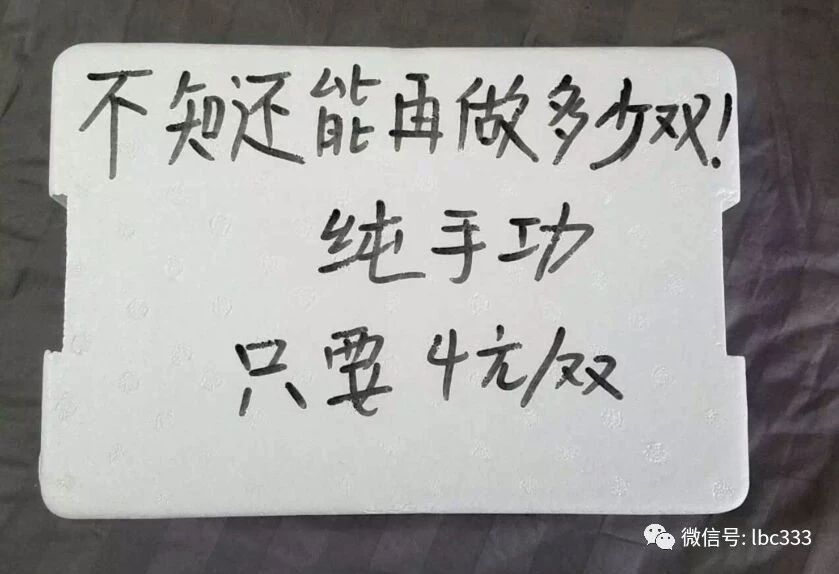 不知还能再做多少双!
纯手功
只要4元/双
微信号: lbc333